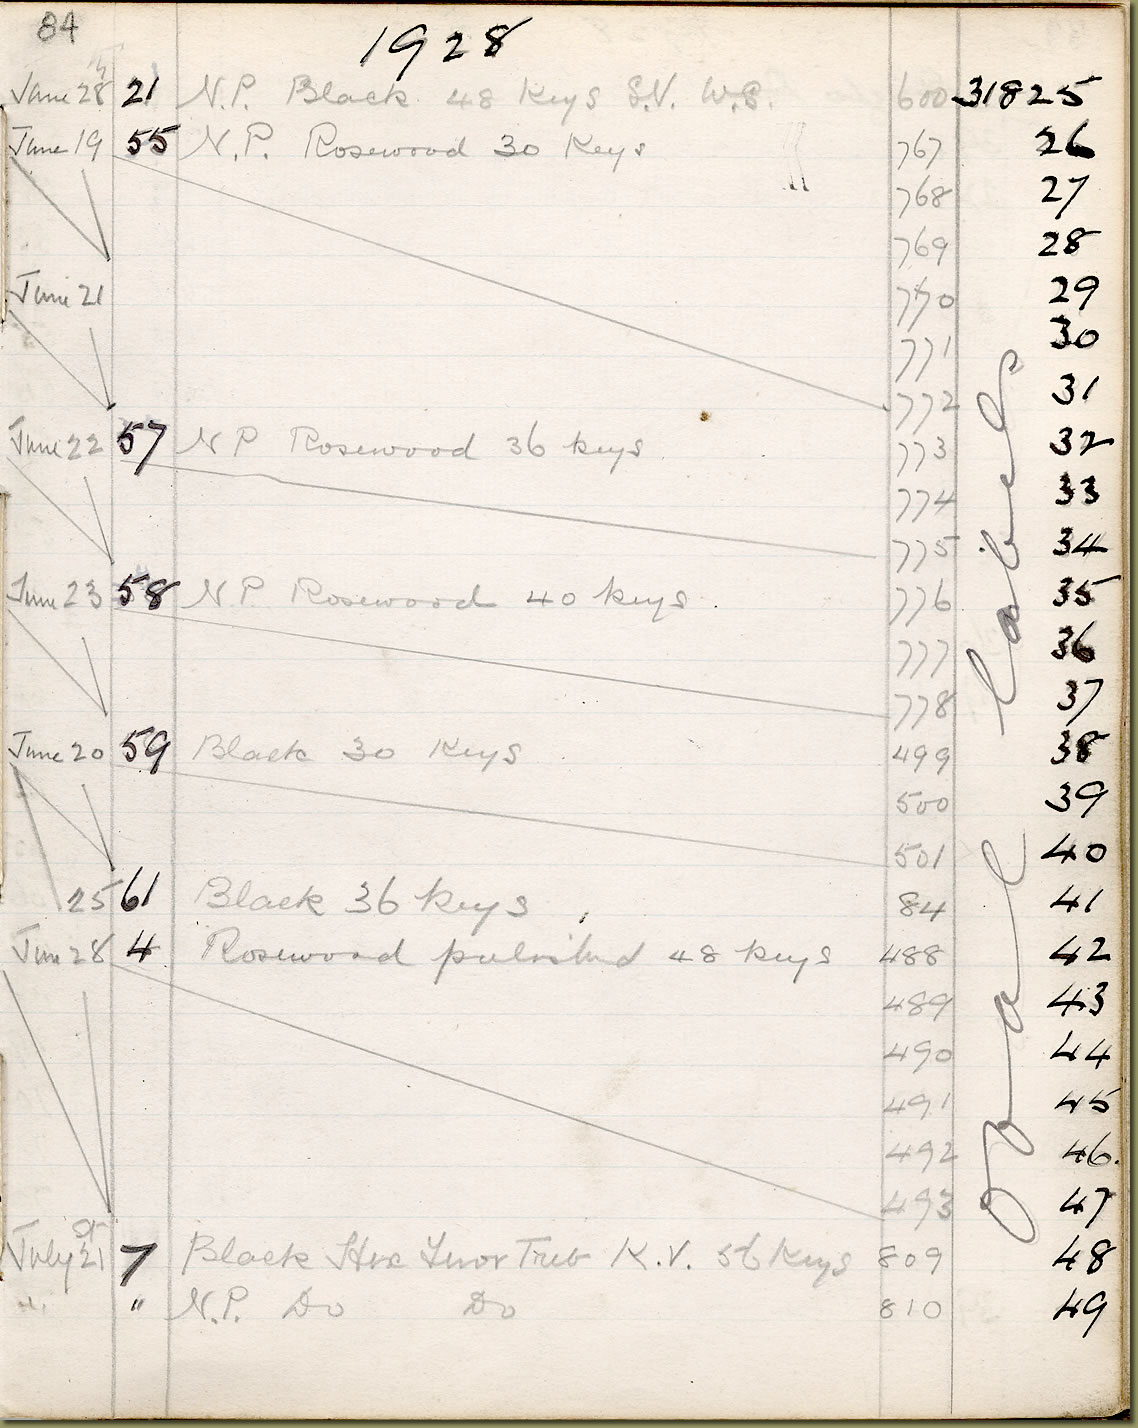 84
1928
June 28 21 N.P. Black 48 Keys S.V. W.S. 600 31825
June 19 55 N.P. Rosewood 30 Keys 767 26
768 27
769 28
June 21 770 29
771 30
772 31
June 22 57 N P Rosewood 36 keys 773 32
774 33
775 34
June 23 58 N.P. Rosewood 40 keys 776 35
777 36
778 37
June 20 59 Black 30 Keys 499 38
500 39
501 40
25 61 Black 36 keys 84 41
June 28 4 Rosewood polished 48 keys 488 42
489 43
490 44
491 45
492 46.
493 47
July 21st 7 Black Tenor Treb K.V. 56 Keys 809 48
" " N.P. Do Do 810 49
Oval labels